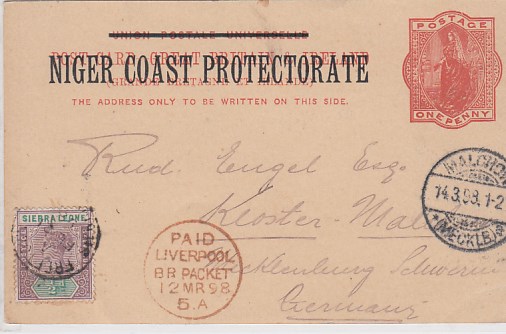 UNION POSTALE UNIVERSELLE
POST CARD GREAT BRITAIN & IRELAND
NIGER COAST PROTECTORATE
(GRANDE BRETAGNE ET IRLANDE)
THE ADDRESS ONLY TO BE WRITTEN ON THIS SIDE.
POSTAGE
ONE PENNY
Rud. Engel Esq.
Kloster-Mal
Mecklenburg Schwerin
Germany
MALCHOW
14.3.98.1-2
*(MECKLB)*
SIERRA LEONE
PAID
LIVERPOOL
BR PACKET
12 MR 98
5.A